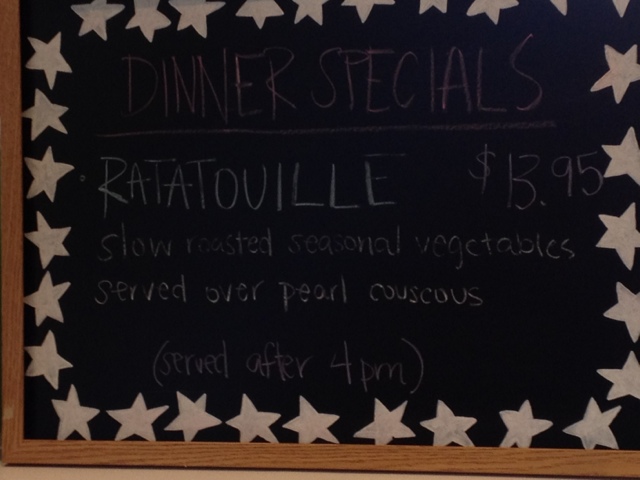 DINNER SPECIALS
RATATOUILLE $13.95
slow roasted seasonal vegetables
served over pearl couscous
(served after 4pm)